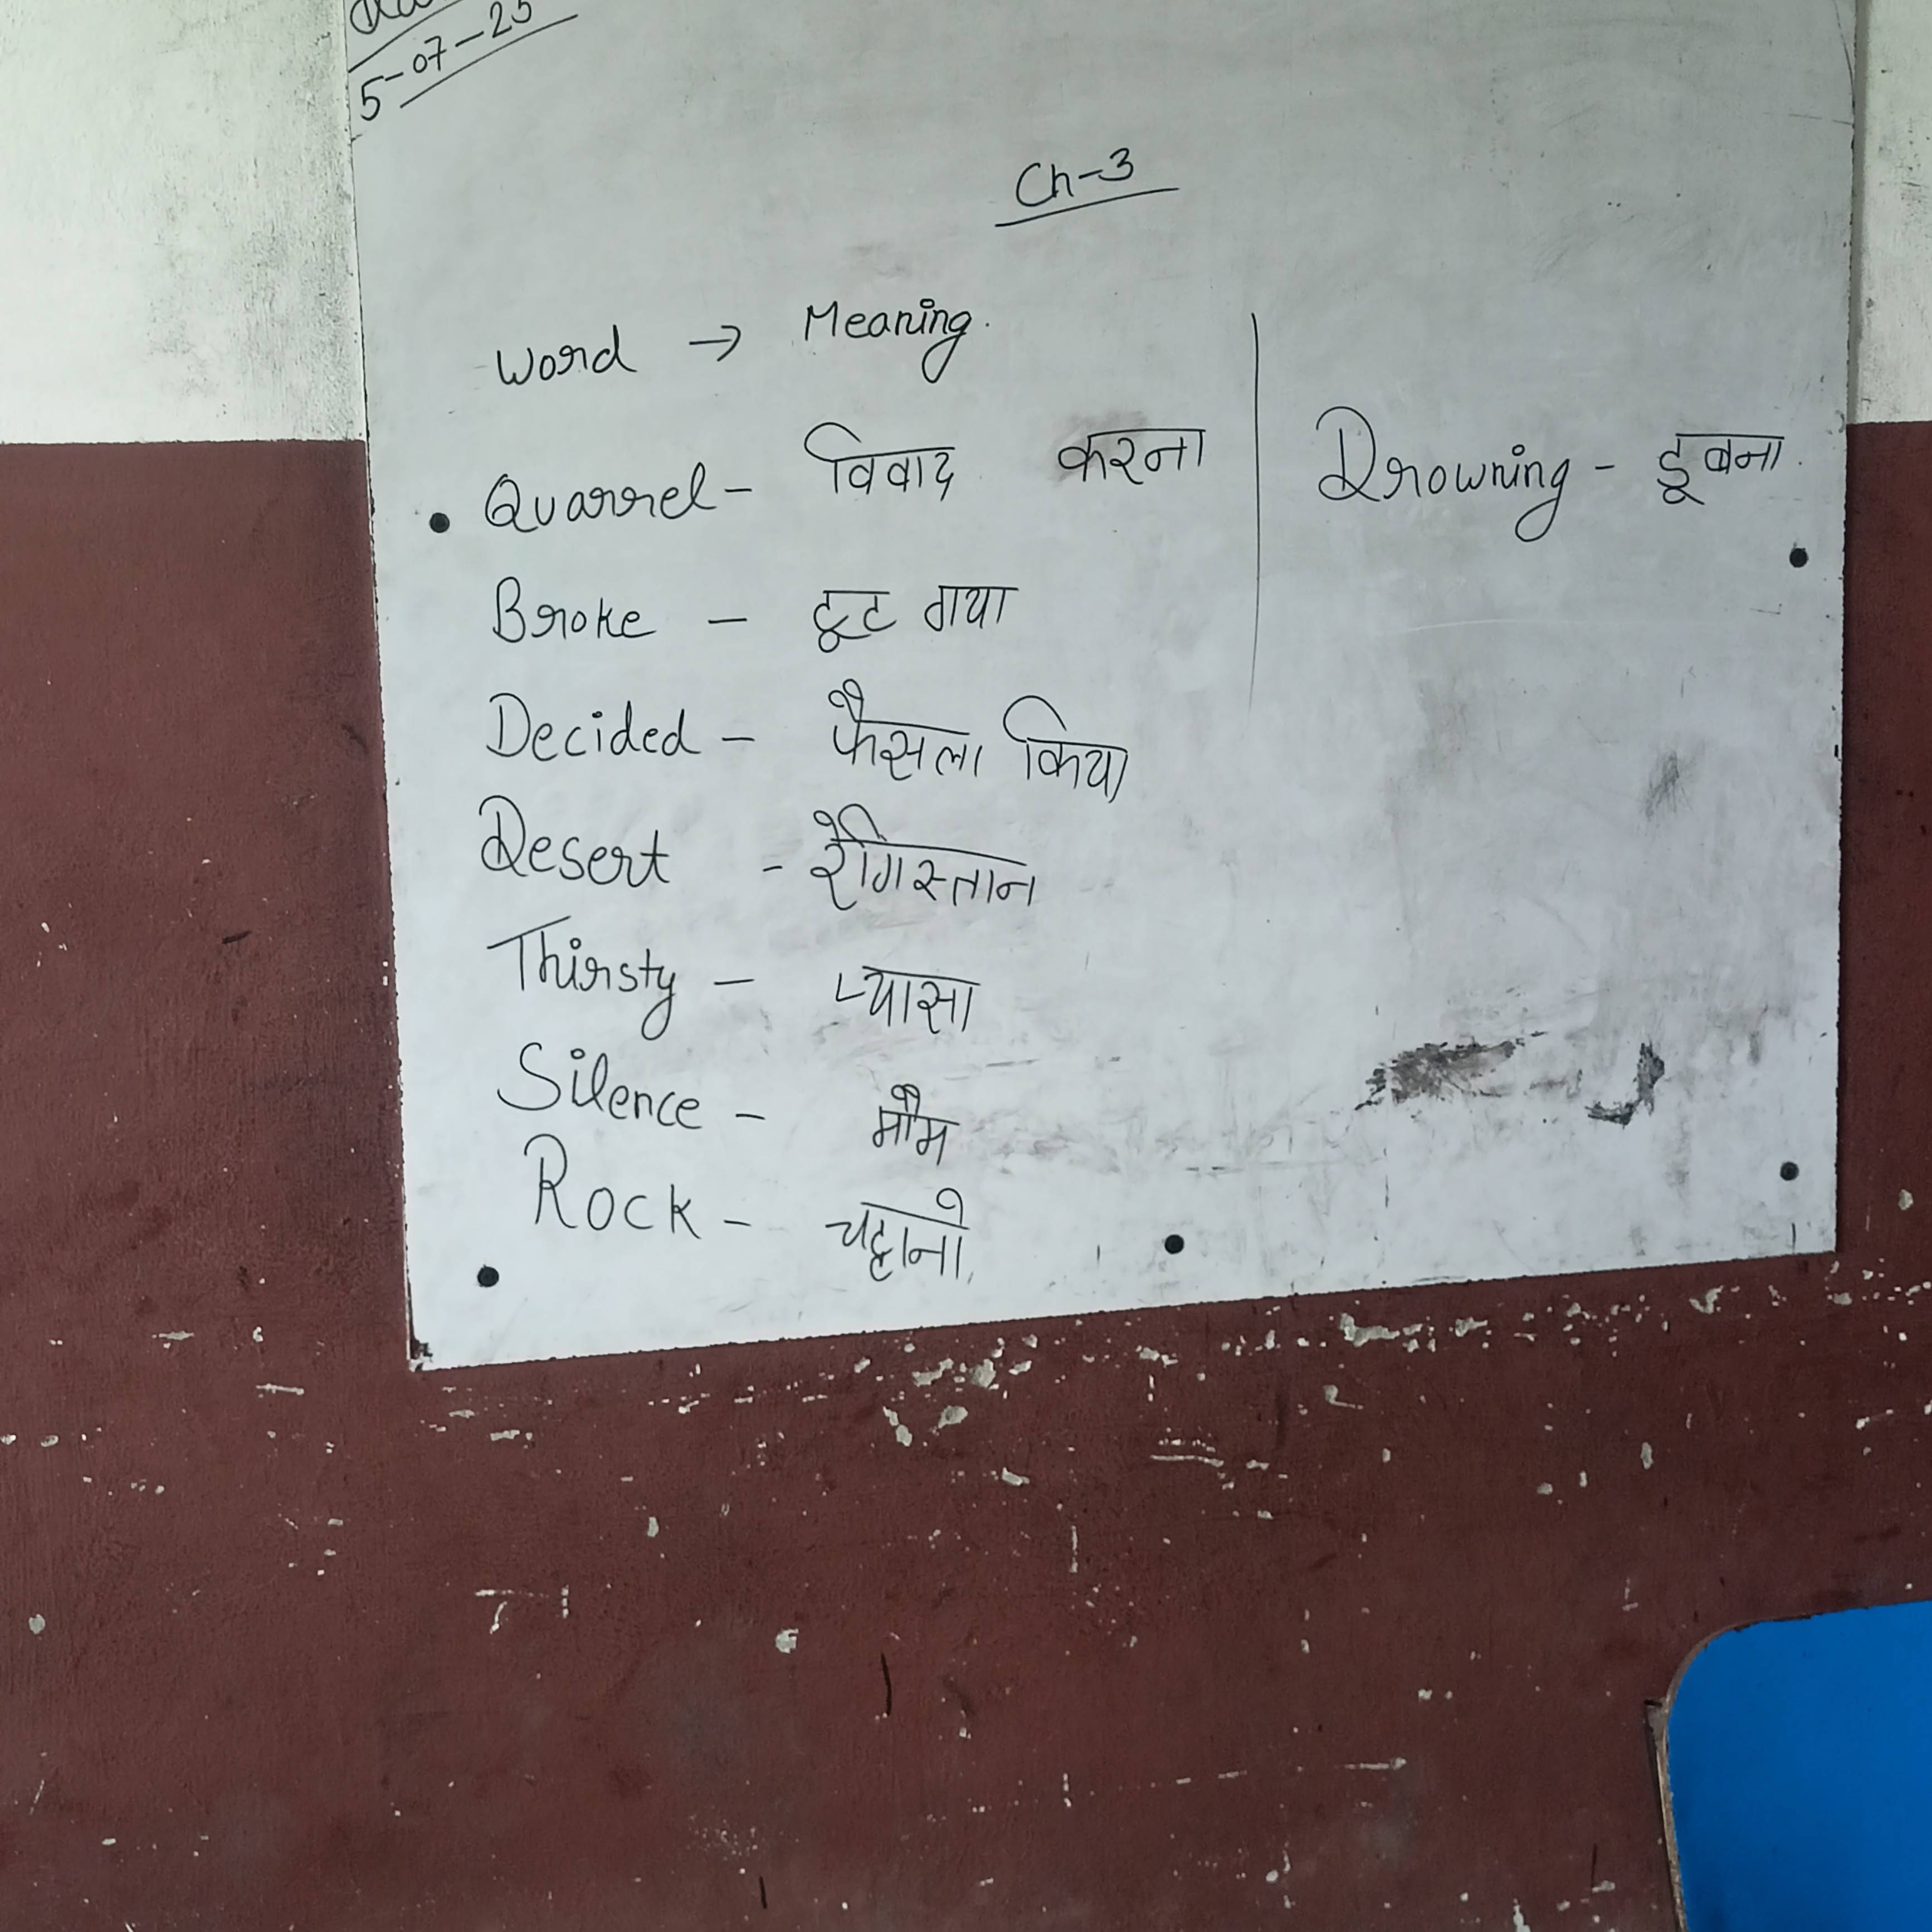 5-07-25
Ch-3
Word → Meaning.
Quarrel - विवाद करना
Broke - टूट गया
Decided - फैसला किया
Desert - रेगिस्तान
Thirsty - प्यासा
Silence - मौम
Rock - चट्टानो
Drowning - डूबना.